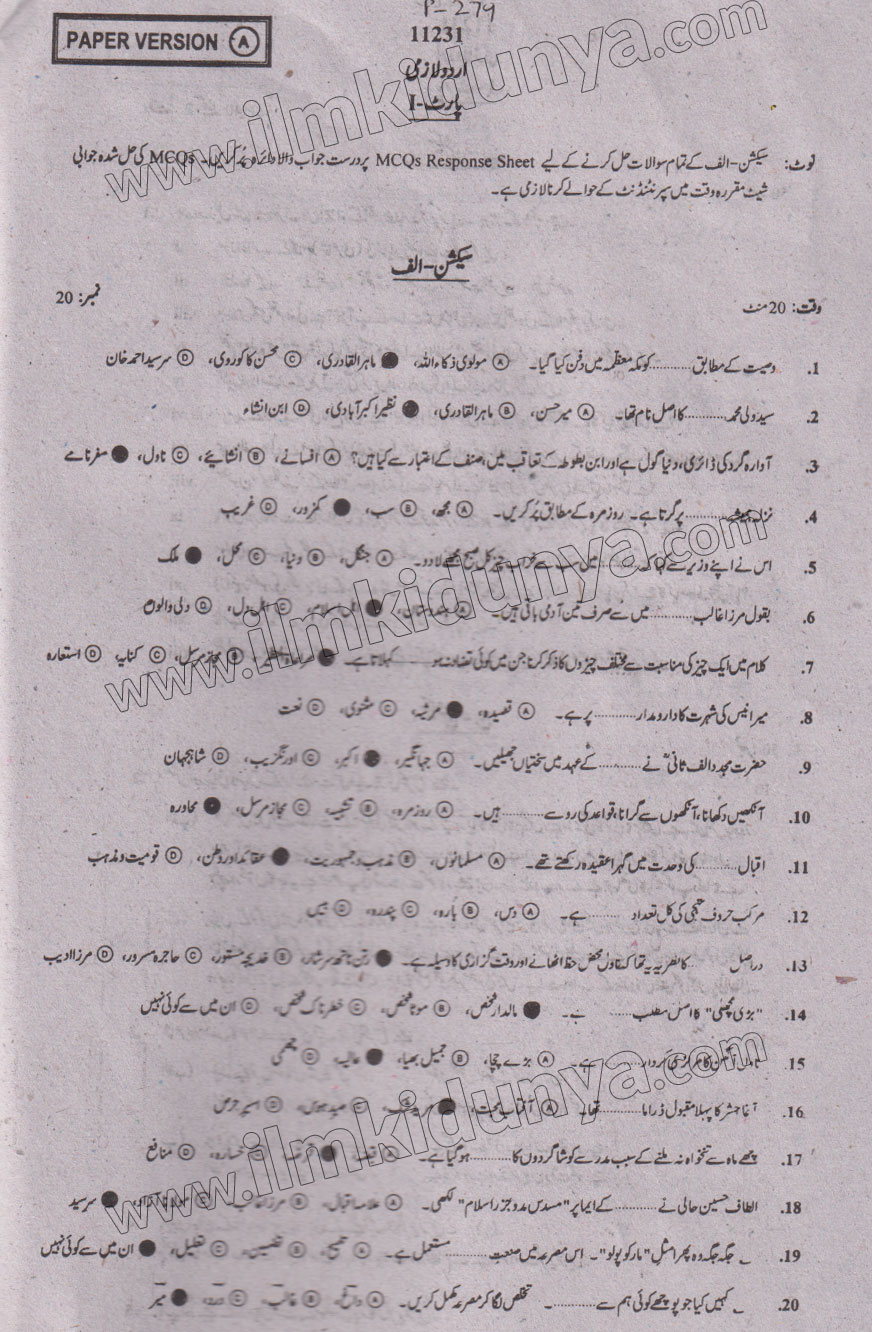 P-279
PAPER VERSION A
11231
اردو لازمی
پارٹ-I
نوٹ: سیکشن-الف کے تمام سوالات حل کرنے کے لیے MCQs Response Sheet پر درست جواب والا دائرہ پُر کریں۔ MCQs کی حل شدہ جوابی
شیٹ مقررہ وقت میں سپرنٹنڈنٹ کے حوالے کرنا لازمی ہے۔
سیکشن-الف
وقت: 20 منٹ نمبر: 20
1. وصیت کے مطابق .......... کو مکہ معظمہ میں دفن کیا گیا۔ A مولوی ذکاء اللہ، ● ماہر القادری، C محسن کاکوروی، D سر سید احمد خان
2. سید ولی محمد .......... کا اصل نام تھا۔ A میر حسن، B ماہر القادری، ● نظیر اکبر آبادی، D ابن انشاء
3. آوارہ گرد کی ڈائری، دنیا گول ہے اور ابن بطوطہ کے تعاقب میں، صنف کے اعتبار سے کیا ہیں؟ A افسانے، B انشائیے، C ناول، ● سفرنامے
4. نزلہ ہمیشہ .......... پر گرتا ہے۔ روزمرہ کے مطابق پُر کریں۔ A مجھ، B سب، ● کمزور، D غریب
5. اس نے اپنے وزیر سے کہا کہ .......... میں سب سے خراب چیز کل صبح مجھے لا دو۔ A جنگل، B دنیا، C محل، ● ملک
6. بقول مرزا غالب .......... میں سے صرف تین آدمی باقی ہیں۔ A ہندوستان، ● اہل اسلام، C اہل دل، D دلی والوں
7. کلام میں ایک چیز کی مناسبت سے مختلف چیزوں کا ذکر کرنا جن میں کوئی تضاد نہ ہو .......... کہلاتا ہے۔ ● مراعاۃ النظیر، B مجاز مرسل، C کنایہ، D استعارہ
8. میر انیس کی شہرت کا دارومدار .......... پر ہے۔ A قصیدہ، ● مرثیہ، C مثنوی، D نعت
9. حضرت مجدد الف ثانیؒ نے .......... کے عہد میں سختیاں جھیلیں۔ A جہانگیر، ● اکبر، C اورنگزیب، D شاہجہان
10. آنکھیں دکھانا، آنکھوں سے گرانا، قواعد کی رو سے .......... ہیں۔ A روزمرہ، B تشبیہ، C مجاز مرسل، ● محاورہ
11. اقبال .......... کی وحدت میں گہرا عقیدہ رکھتے تھے۔ A مسلمانوں، B مذہب و جمہوریت، ● عقائد اور وطن، D قومیت و مذہب
12. مرکب حروف تہجی کی کل تعداد .......... ہے۔ A دس، B بارہ، C پندرہ، D بیس
13. دراصل .......... کا نظریہ یہ تھا کہ ناول محض حظ اٹھانے اور وقت گزاری کا وسیلہ ہے۔ ● رتن ناتھ سرشار، B خدیجہ مستور، C حاجرہ مسرور، D مرزا ادیب
14. "بڑی مچھلی" کا اصل مطلب .......... ہے۔ ● مالدار شخص، B موٹا شخص، C خطرناک شخص، D ان میں سے کوئی نہیں
15. ناول آنگن کا مرکزی کردار .......... ہے۔ A بڑے چچا، B جمیل بھیا، ● عالیہ، D چھمی
16. آغا حشر کا پہلا مقبول ڈراما .......... تھا۔ A آفتاب محبت، ● مرید شک، C صید ہوس، D اسیر حرص
17. چھ ماہ سے تنخواہ نہ ملنے کے سبب مدرسے کو شاگردوں کا .......... ہو گیا ہے۔ C خسارہ، D منافع
18. الطاف حسین حالی نے .......... کے ایما پر "مسدس مدوجزر اسلام" لکھی۔ A علامہ اقبال، B مرزا غالب، C مولانا آزاد، ● سر سید
19. ـ جگہ جگہ وہ پھرا مثلِ "مارکوپولو"۔ اس مصرعہ میں صنعت .......... مستعمل ہے۔ A تلمیح، B تضمین، C تعلیل، ● ان میں سے کوئی نہیں
20. ـ کہیں کیا جو پوچھے کوئی ہم سے ..........۔ تخلص لگا کر مصرعہ مکمل کریں۔ A داغ، B غالب، C درد، ● میر
www.ilmkidunya.com
www.ilmkidunya.com
www.ilmkidunya.com